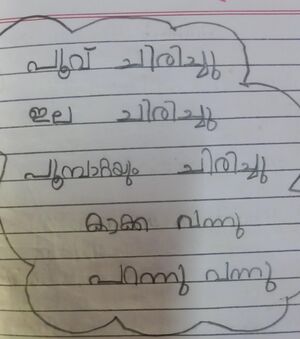 പൂവ് ചിരിച്ചു
ഇല ചിരിച്ചു
പൂമ്പാറ്റയും ചിരിച്ചു
കാക്ക വന്നു
പറന്നു വന്നു